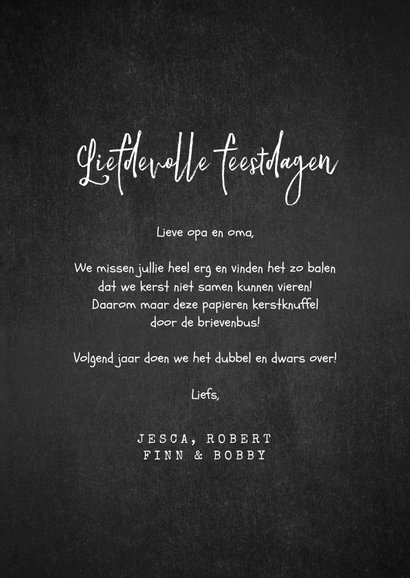 Liefdevolle feestdagen
Lieve opa en oma,
We missen jullie heel erg en vinden het zo balen
dat we kerst niet samen kunnen vieren!
Daarom maar deze papieren kerstknuffel
door de brievenbus!
Volgend jaar doen we het dubbel en dwars over!
Liefs,
JESCA, ROBERT
FINN & BOBBY